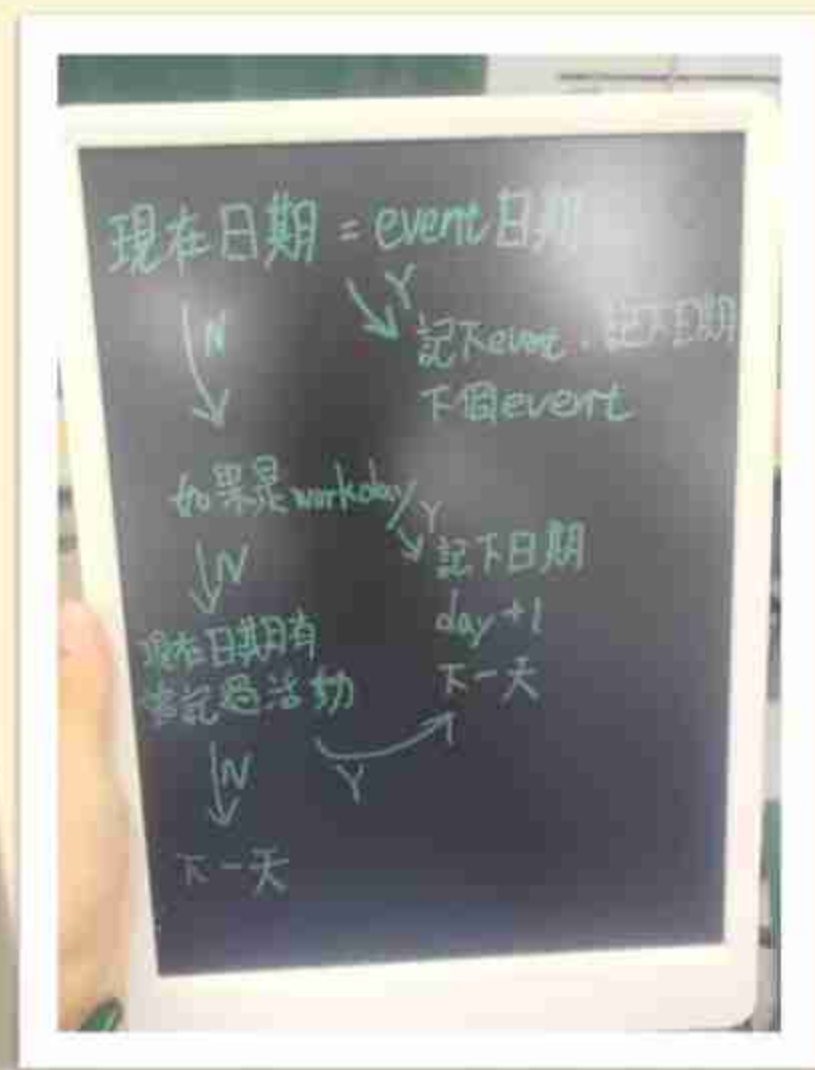 現在日期 = event日期
Y
N
記下event、記下日期
下個event
如果是workday
Y
N
記下日期
day+1
下一天
現在日期有
登記過活動
N
Y
下一天